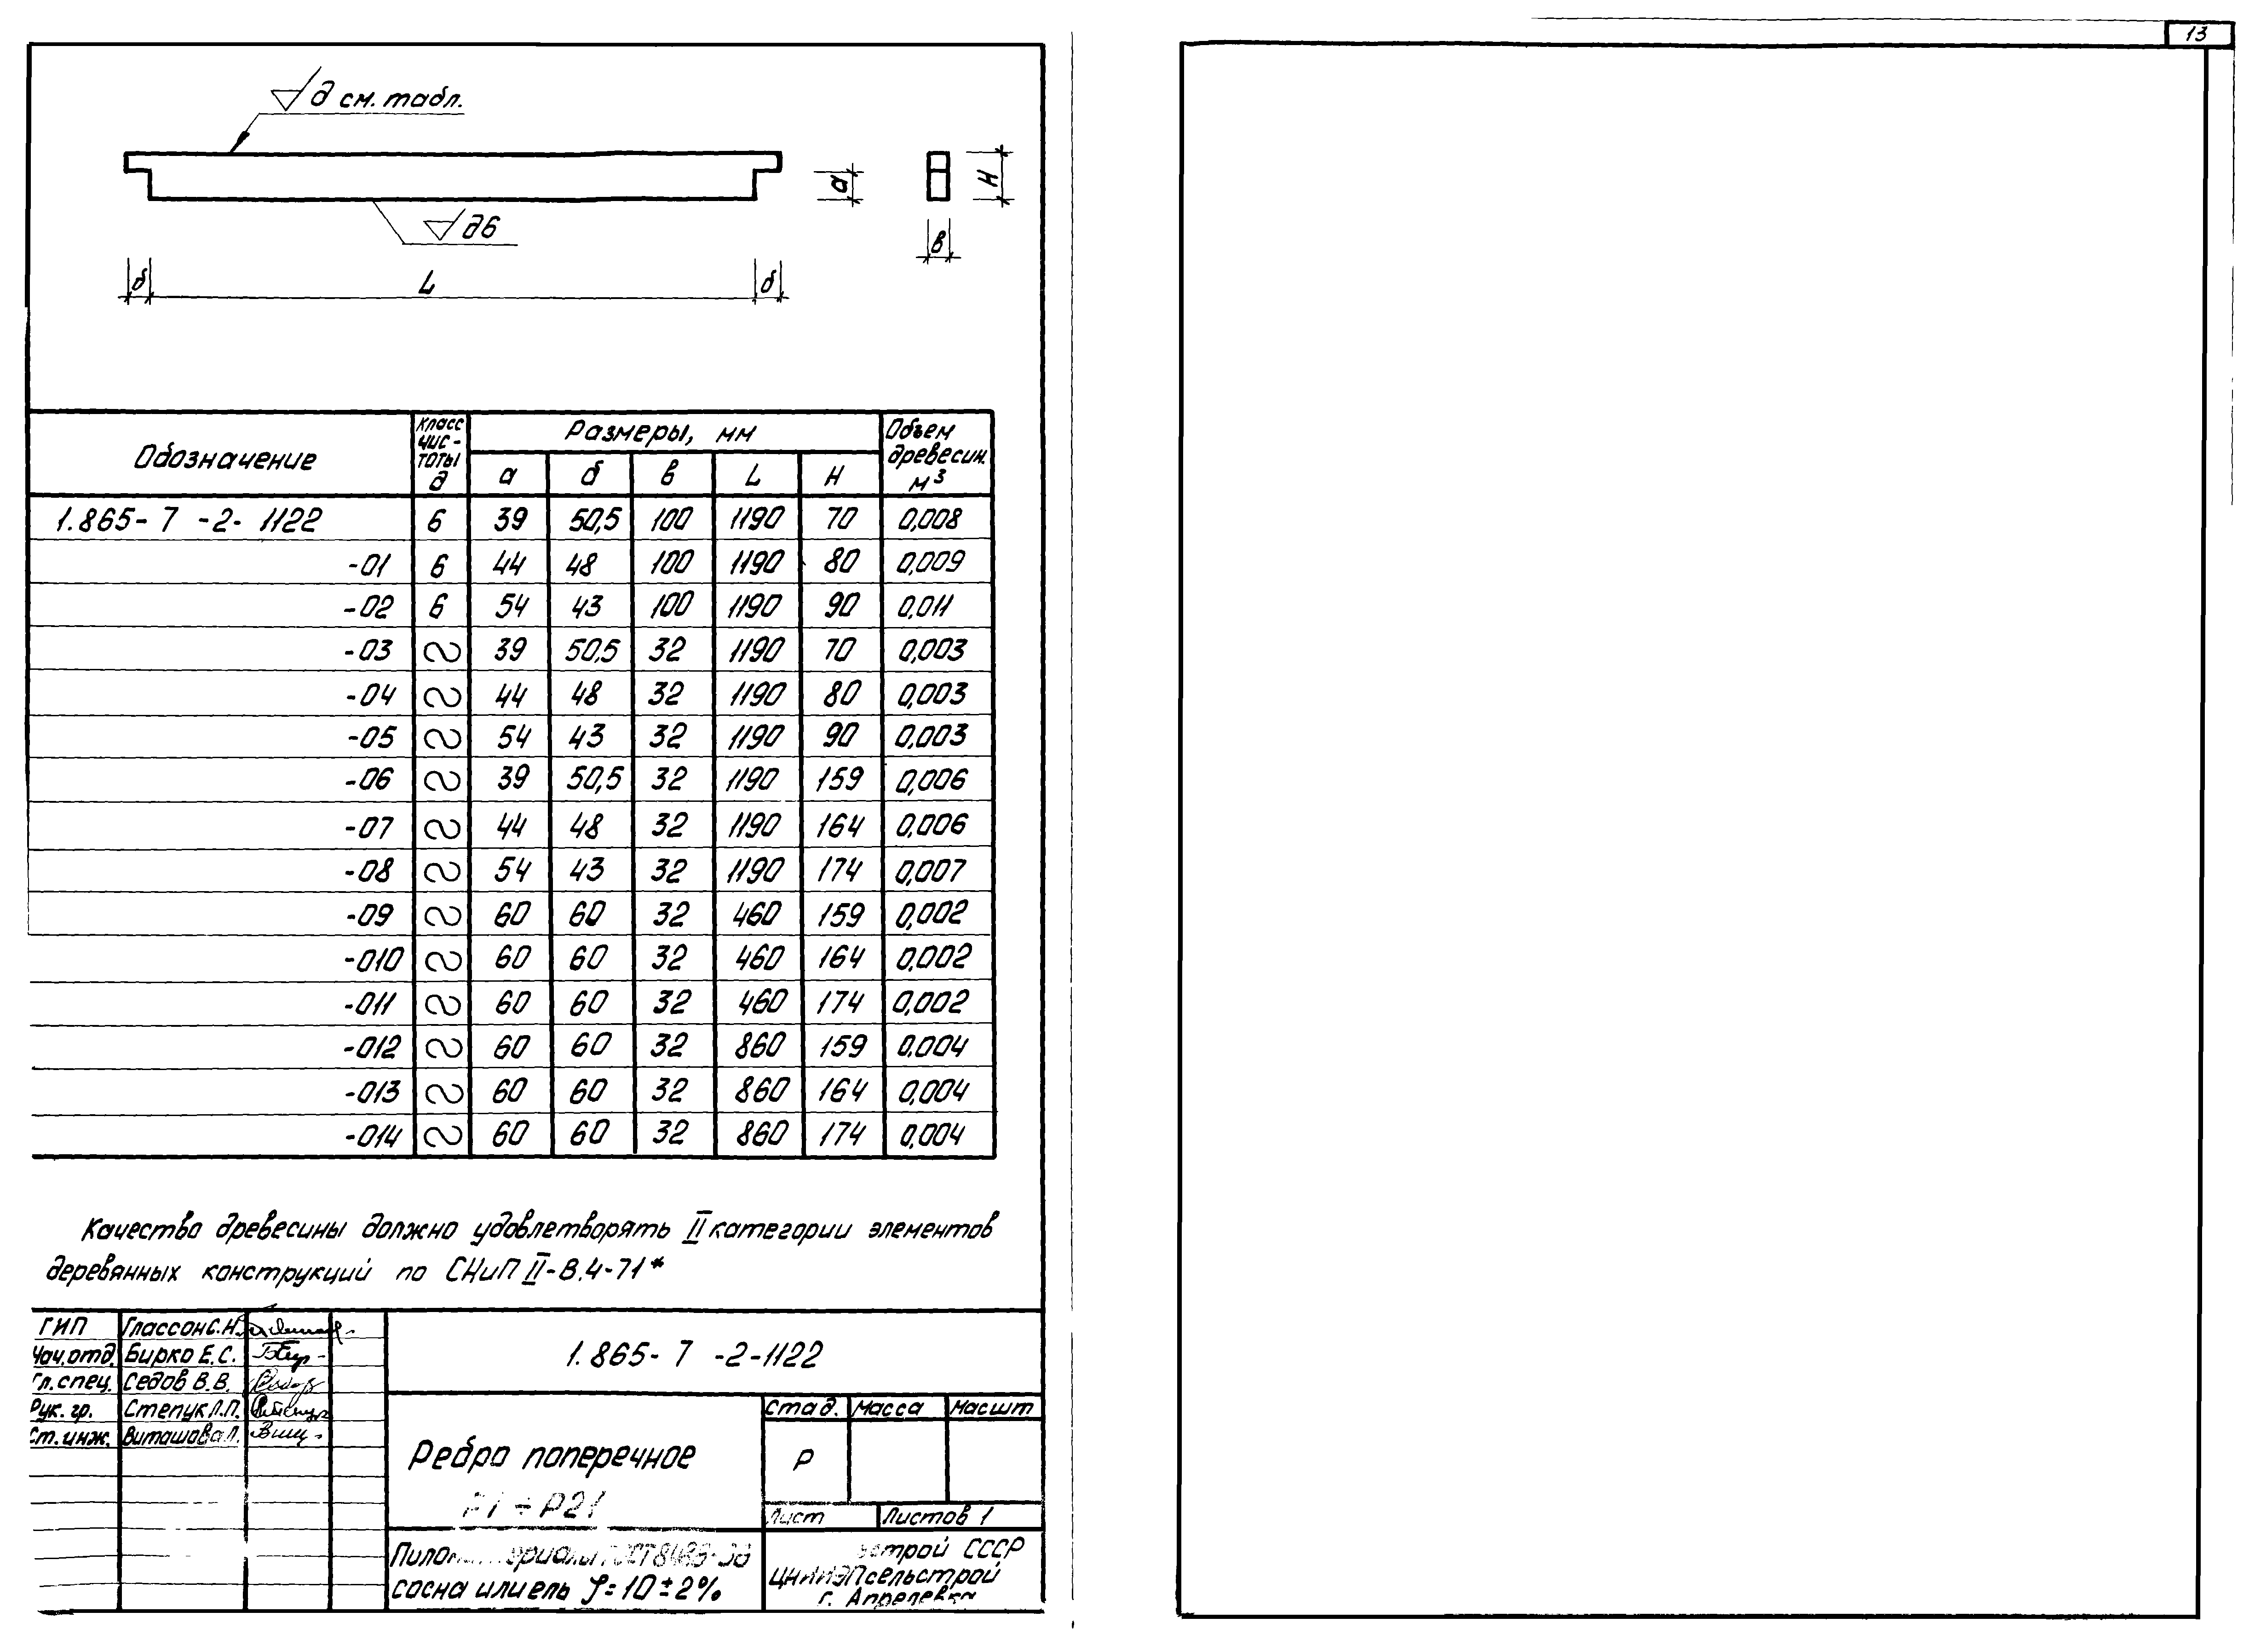 13
∂ см. табл.
а
Н
∂6
в
б L б
Обозначение
Класс
чис-
тоты
∂
Размеры, мм
Объем
древесин.
м³
а б в L Н
1.865- 7 -2- 1122 6 39 50,5 100 1190 70 0,008
-01 6 44 48 100 1190 80 0,009
-02 6 54 43 100 1190 90 0,011
-03 ∾ 39 50,5 32 1190 70 0,003
-04 ∾ 44 48 32 1190 80 0,003
-05 ∾ 54 43 32 1190 90 0,003
-06 ∾ 39 50,5 32 1190 159 0,006
-07 ∾ 44 48 32 1190 164 0,006
-08 ∾ 54 43 32 1190 174 0,007
-09 ∾ 60 60 32 460 159 0,002
-010 ∾ 60 60 32 460 164 0,002
-011 ∾ 60 60 32 460 174 0,002
-012 ∾ 60 60 32 860 159 0.004
-013 ∾ 60 60 32 860 164 0,004
-014 ∾ 60 60 32 860 174 0,004
Качество древесины должно удовлетворять II категории элементов
деревянных конструкций по СНиП II-В.4-71*
ГИП Глассон С.Н.
Нач.отд. Бирко Е.С.
Гл.спец. Седов В.В.
Рук. гр. Степук Л.П.
Ст. инж. Виташова Л.
1.865- 7 -2-1122
Ребро поперечное
Р1 ÷ Р21
Стад. Масса Масшт
Р
Лист Листов 1
сосна или ель φ=10±2%
СССР
ЦНИИЭПсельстрой
г. Апрелевка